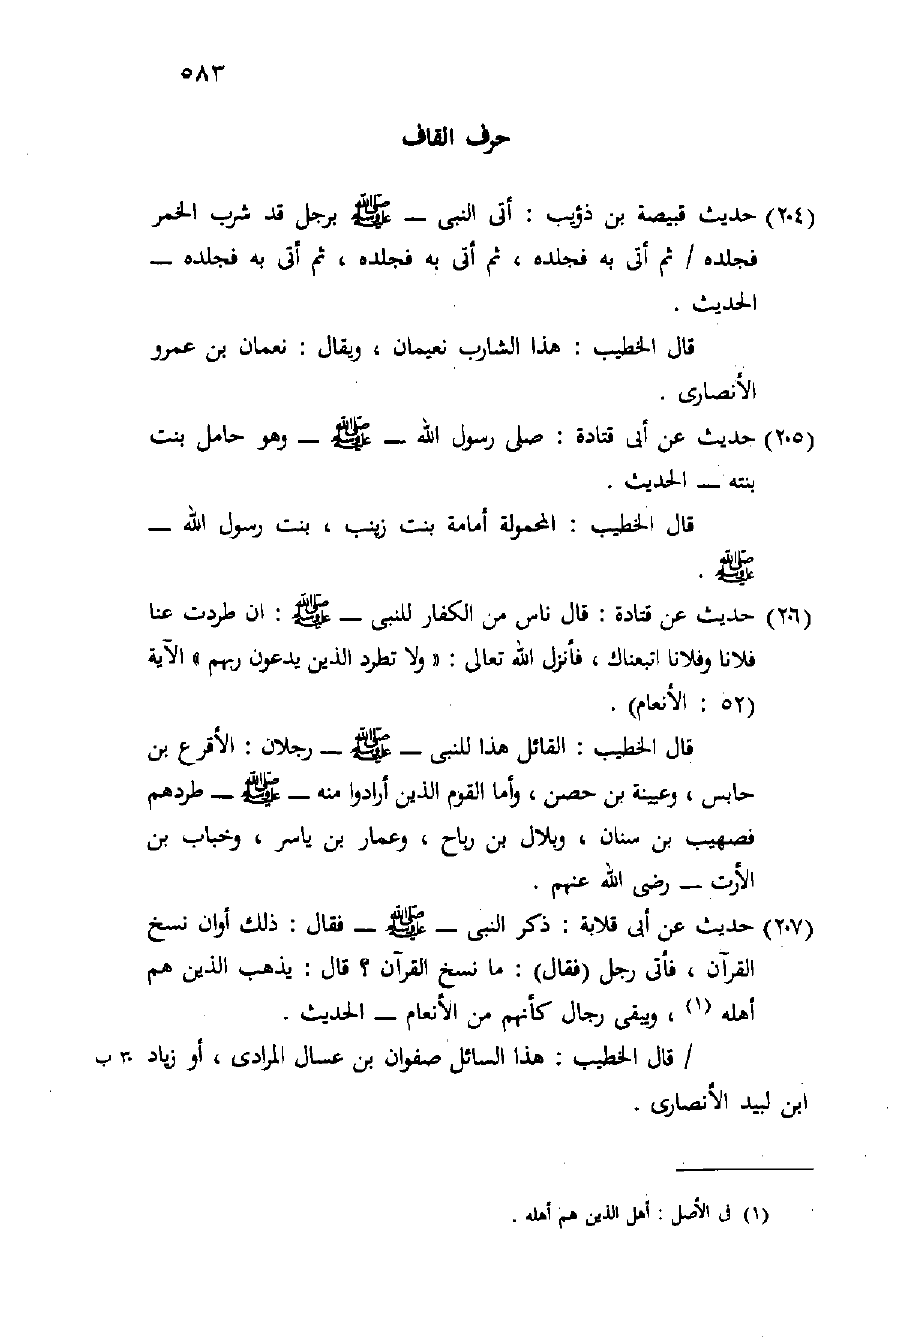 ٥٨٣
حرف القاف
(٢٠٤) حديث قبيصة بن ذؤيب : أتى النبى — ﷺ برجل قد شرب الخمر
فجلده / ثم أتى به فجلده ، ثم أتى به فجلده ، ثم أتى به فجلده —
الحديث .
قال الخطيب : هذا الشارب نعيمان ، ويقال : نعمان بن عمرو
الأنصارى .
(٢٠٥) حديث عن أبى قتادة : صلى رسول الله — ﷺ — وهو حامل بنت
بنته — الحديث .
قال الخطيب : المحمولة أمامة بنت زينب ، بنت رسول الله —
ﷺ .
(٢٠٦) حديث عن قتادة : قال ناس من الكفار للنبى — ﷺ : ان طردت عنا
فلانا وفلانا اتبعناك ، فأنزل الله تعالى : « ولا تطرد الذين يدعون ربهم » الآية
(٥٢ : الأنعام) .
قال الخطيب : القائل هذا للنبى — ﷺ — رجلان : الأقرع بن
حابس ، وعيينة بن حصن ، وأما القوم الذين أرادوا منه — ﷺ — طردهم
فصهيب بن سنان ، وبلال بن رباح ، وعمار بن ياسر ، وخباب بن
الأرت — رضى الله عنهم .
(٢٠٧) حديث عن أبى قلابة : ذكر النبى — ﷺ — فقال : ذلك أوان نسخ
القرآن ، فأتى رجل (فقال) : ما نسخ القرآن ؟ قال : يذهب الذين هم
أهله (١) ، ويبقى رجال كأنهم من الأنعام — الحديث .
/ قال الخطيب : هذا السائل صفوان بن عسال المرادى ، أو زياد ٣٠ ب
ابن لبيد الأنصارى .
(١) فى الأصل : أهل الذين هم أهله .